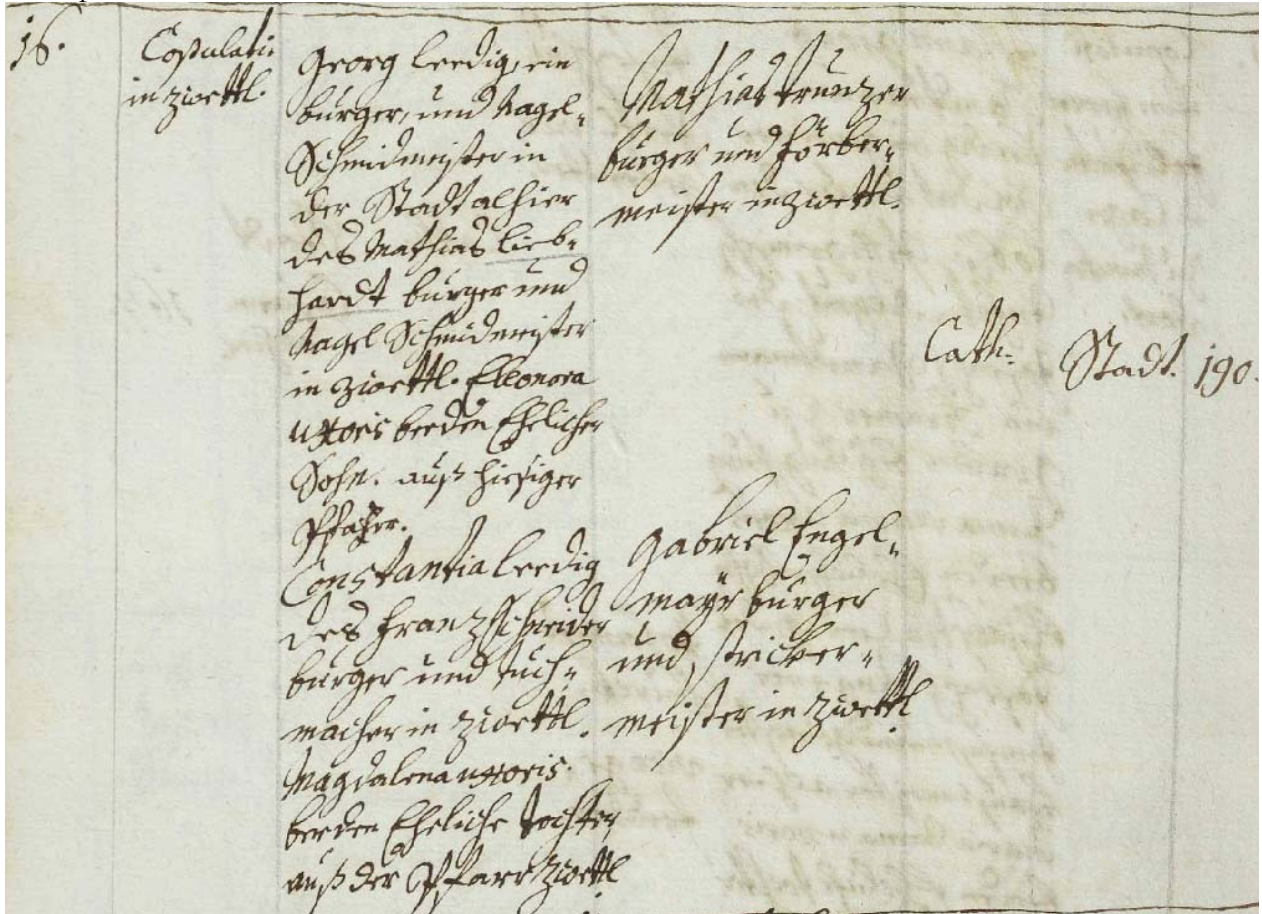 16.
Copulatio
in Zwettl.
Georg leedig, ein
bürger, und Nagel-
Schmidmeister in
der Stadt alhier
des Mathias Lieb-
hardt bürger und
Nagel Schmidmeister
in Zwettl. Elleonora
uxoris beeden Ehelicher
Sohn. auß hiesiger
Pfaher.
Constantia leedig
des Franz Schneider
bürger und Tuch-
macher in Zwettl.
Magdalena uxoris.
beeden Eheliche Tochter
auß der Pfarr Zwettl
Mathias Trunzer
bürger und Förber-
meister in Zwettl.
Gabriel Engel-
mayr bürger
und Stricker-
meister in Zwettl.
Cath:
Stadt.
190.